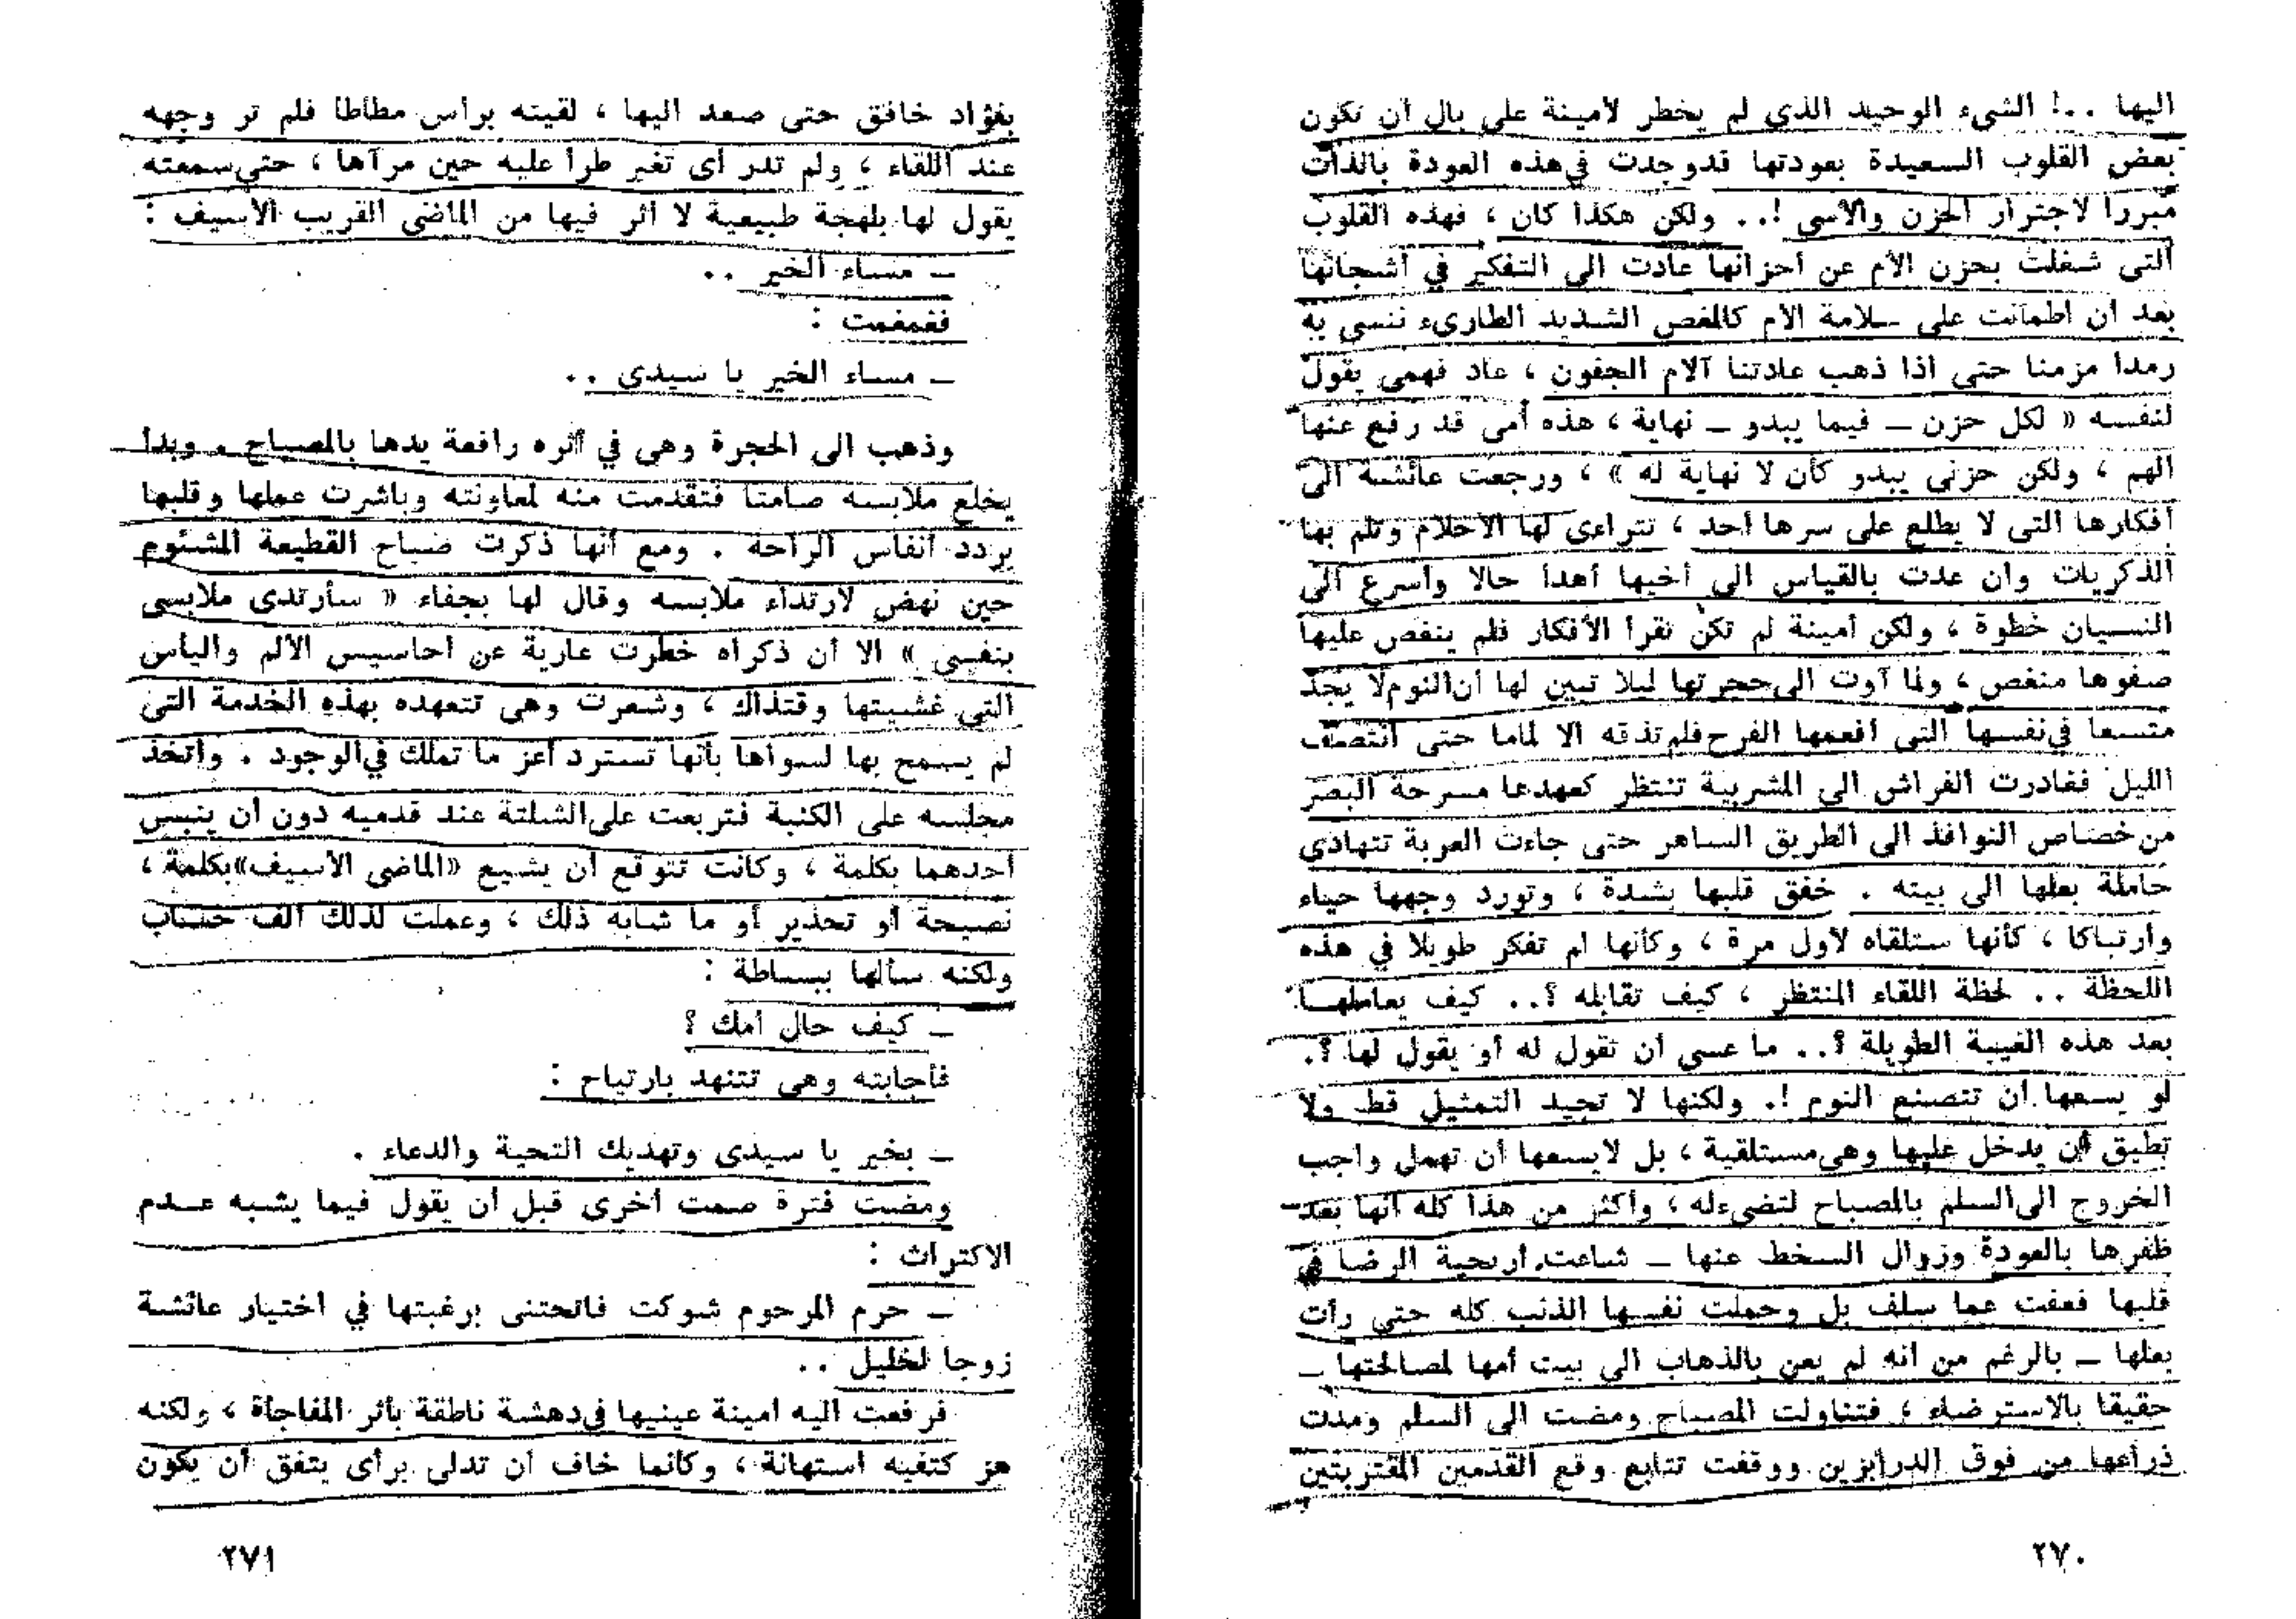 اليها ..! الشيء الوحيد الذي لم يخطر لأمينة على بال أن تكون
بعض القلوب السعيدة بعودتها قد وجدت في هذه العودة بالذات
مبررا لاجترار الحزن والأسى !.. ولكن هكذا كان ، فهذه القلوب
التى شغلت بحزن الأم عن أحزانها عادت الى التفكير في أشجانها
بعد أن اطمأنت على سلامة الأم كالمغص الشديد الطارىء ننسى به
رمدا مزمنا حتى اذا ذهب عادتنا آلام الجفون ، عاد فهمى يقول
لنفسه « لكل حزن ــ فيما يبدو ــ نهاية ، هذه أمى قد رفع عنها
الهم ، ولكن حزنى يبدو كأن لا نهاية له » ، ورجعت عائشة الى
أفكارها التى لا يطلع على سرها أحد ، تتراءى لها الأحلام وتلم بها
الذكريات وان عدت بالقياس الى أخيها أهدأ حالا وأسرع الى
النسيان خطوة ، ولكن أمينة لم تكن تقرأ الأفكار فلم ينغص عليها
صفوها منغص ، ولما آوت الى حجرتها ليلا تبين لها أن النوم لا يجد
متسعا في نفسها التى أفعمها الفرح فلم تذقه الا لماما حتى انتصف
الليل فغادرت الفراش الى المشربية تنتظر كعهدها مسرحة البصر
من خصاص النوافذ الى الطريق الساهر حتى جاءت العربة تتهادى
حاملة بعلها الى بيته . خفق قلبها بشدة ، وتورد وجهها حياء
وارتباكا ، كأنها ستلقاه لأول مرة ، وكأنها لم تفكر طويلا في هذه
اللحظة .. لحظة اللقاء المنتظر ، كيف تقابله ؟.. كيف يعاملها
بعد هذه الغيبة الطويلة ؟.. ما عسى أن تقول له أو يقول لها ؟.
لو يسعها أن تتصنع النوم !. ولكنها لا تجيد التمثيل قط ولا
تطيق أن يدخل عليها وهى مستلقية ، بل لا يسعها أن تهمل واجب
الخروج الى السلم بالمصباح لتضىء له ، وأكثر من هذا كله أنها بعد
ظفرها بالعودة وزوال السخط عنها ــ شاعت أريحية الرضا في
قلبها فعفت عما سلف بل وحملت نفسها الذنب كله حتى رأت
بعلها ــ بالرغم من أنه لم يعن بالذهاب الى بيت أمها لمصالحتها ــ
حقيقا بالاسترضاء ، فتناولت المصباح ومضت الى السلم ومدت
ذراعها من فوق الدرابزين ووقفت تتابع وقع القدمين المقتربتين
٢٧٠
بفؤاد خافق حتى صعد اليها ، لقيته برأس مطأطأ فلم تر وجهه
عند اللقاء ، ولم تدر أى تغير طرأ عليه حين مرآها ، حتى سمعته
يقول لها بلهجة طبيعية لا أثر فيها من الماضى القريب الأسيف :
ــ مساء الخير ..
فغمغمت :
ــ مساء الخير يا سيدى ..
وذهب الى الحجرة وهى في أثره رافعة يدها بالمصباح . وبدأ
يخلع ملابسه صامتا فتقدمت منه لمعاونته وباشرت عملها وقلبها
يردد أنفاس الراحة . ومع أنها ذكرت صباح القطيعة المشئوم
حين نهض لارتداء ملابسه وقال لها بجفاء « سأرتدى ملابسى
بنفسى » الا أن ذكراه خطرت عارية عن أحاسيس الألم واليأس
التى غشيتها وقتذاك ، وشعرت وهى تتعهده بهذه الخدمة التى
لم يسمح بها لسواها بأنها تسترد أعز ما تملك في الوجود . واتخذ
مجلسه على الكنبة فتربعت على الشلتة عند قدميه دون أن ينبس
أحدهما بكلمة ، وكانت تتوقع أن يشيع «الماضى الأسيف» بكلمة ،
نصيحة أو تحذير أو ما شابه ذلك ، وعملت لذلك ألف حساب
ولكنه سألها ببساطة :
ــ كيف حال أمك ؟
فأجابته وهى تتنهد بارتياح :
ــ بخير يا سيدى وتهديك التحية والدعاء .
ومضت فترة صمت أخرى قبل أن يقول فيما يشبه عدم
الاكتراث :
ــ حرم المرحوم شوكت فاتحتنى برغبتها في اختيار عائشة
زوجا لخليل ..
فرفعت اليه أمينة عينيها في دهشة ناطقة بأثر المفاجأة ، ولكنه
هز كتفيه استهانة ، وكأنما خاف أن تدلى برأى يتفق أن يكون
٢٧١